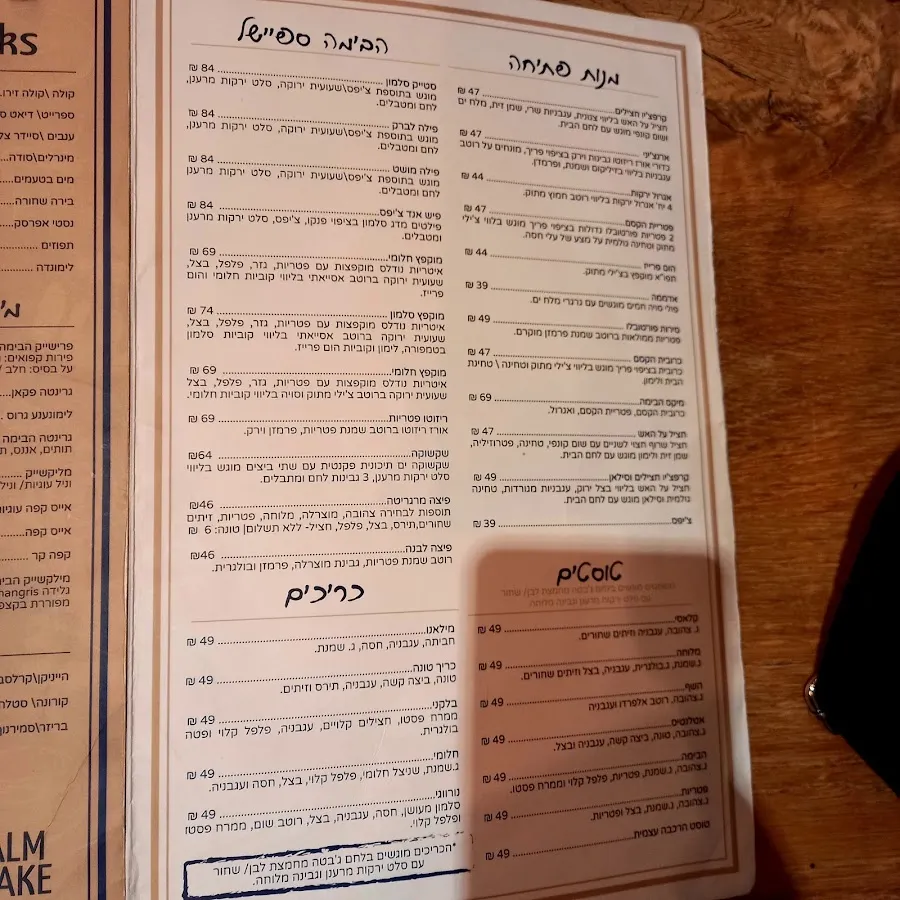 מנות פתיחה
קרפצ'יו חצילים ... 47 ₪
חציל על האש בליווי צנונית, עגבניות שרי, שמן זית, מלח ים
ושום קונפי מוגש עם לחם הבית.
ארנצ'יני ... 47 ₪
כדורי אורז ריזוטו גבינות וירק בציפוי פריך, מונחים על רוטב
עגבניות בליווי בזיליקוס ושמנת, ופרמזן.
אגרול ירקות ... 44 ₪
4 יח' אגרול ירקות בליווי רוטב חמוץ מתוק.
פטריית הקסם ... 47 ₪
2 פטריות פורטובלו גדולות בציפוי פריך מוגש בלווי צ'ילי
מתוק וטחינה גולמית על מצע של עלי חסה.
הום פרייז ... 44 ₪
תפו"א מוקפץ בצ'ילי מתוק.
אדממה ... 39 ₪
פולי סויה חמים מוגשים עם גרגרי מלח ים.
סירות פורטובלו ... 49 ₪
פטריות ממולאות ברוטב שמנת פרמזן מוקרם.
כרובית הקסם ... 47 ₪
כרובית בציפוי פריך מוגש בליווי צ'ילי מתוק וטחינה \ טחינת
הבית ולימון.
מיקס הבימה ... 69 ₪
כרובית הקסם, פטריית הקסם, ואגרול.
חציל על האש ... 47 ₪
חציל שרוף חצוי לשניים עם שום קונפי, טחינה, פטרוזיליה,
שמן זית ולימון מוגש עם לחם הבית.
קרפצ'יו חצילים וסילאן ... 49 ₪
חציל על האש בליווי בצל ירוק, עגבניות מגורדות, טחינה
גולמית וסילאן מוגש עם לחם הבית.
צ'יפס ... 39 ₪
טוסטים
הטוסטים מוגשים בלחם ג'בטה מחמצת לבן/ שחור
עם סלט ירקות מרענן וגבינה מלוחה
קלאסי ... 49 ₪
ג. צהובה, עגבניה וזיתים שחורים.
מלוחה ... 49 ₪
ג.שמנת, ג.בולגרית, עגבניה, בצל וזיתים שחורים.
השף ... 49 ₪
ג.צהובה, רוטב אלפרדו ועגבניה
אטלנטיס ... 49 ₪
ג.צהובה, טונה, ביצה קשה, עגבניה ובצל.
הבימה ... 49 ₪
ג.צהובה, ג.שמנת, פטריות, פלפל קלוי וממרח פסטו.
פטריות ... 49 ₪
ג.צהובה, ג.שמנת, בצל ופטריות.
טוסט הרכבה עצמית ... 49 ₪
הבימה ספיישל
סטייק סלמון ... 84 ₪
מוגש בתוספת צ'יפס\שעועית ירוקה, סלט ירקות מרענן,
לחם ומטבלים.
פילה לברק ... 84 ₪
מוגש בתוספת צ'יפס\שעועית ירוקה, סלט ירקות מרענן,
לחם ומטבלים.
פילה מושט ... 84 ₪
מוגש בתוספת צ'יפס\שעועית ירוקה, סלט ירקות מרענן
לחם ומטבלים.
פיש אנד צ'יפס ... 84 ₪
פילטים מדג סלמון בציפוי פנקו, צ'יפס, סלט ירקות מרענן
ומטבלים.
מוקפץ חלומי ... 69 ₪
איטריות נודלס מוקפצות עם פטריות, גזר, פלפל, בצל,
שעועית ירוקה ברוטב אסייאתי בליווי קוביות חלומי והום
פרייז.
מוקפץ סלמון ... 74 ₪
איטריות נודלס מוקפצות עם פטריות, גזר, פלפל, בצל,
שעועית ירוקה ברוטב אסייאתי בליווי קוביות סלמון
בטמפורה, לימון וקוביות הום פרייז.
מוקפץ חלומי ... 69 ₪
איטריות נודלס מוקפצות עם פטריות, גזר, פלפל, בצל
שעועית ירוקה ברוטב צ'ילי מתוק וסויה בליווי קוביות חלומי.
ריזוטו פטריות ... 69 ₪
אורז ריזוטו ברוטב שמנת פטריות, פרמזן וירק.
שקשוקה ... 64₪
שקשוקה ים תיכונית פקנטית עם שתי ביצים מוגש בליווי
סלט ירקות מרענן, 3 גבינות לחם ומתבלים.
פיצה מרגריטה ... 46₪
תוספות לבחירה צהובה, מוצרלה, מלוחה, פטריות, זיתים
שחורים,תירס, בצל, פלפל, חציל- ללא תשלום| טונה: 6 ₪
פיצה לבנה ... 46₪
רוטב שמנת פטריות, גבינת מוצרלה, פרמזן ובולגרית.
כריכים
מילאנו ... 49 ₪
חביתה, עגבניה, חסה, ג. שמנת.
כריך טונה ... 49 ₪
טונה, ביצה קשה, עגבניה, תירס וזיתים.
בלקני ... 49 ₪
ממרח פסטו, חצילים קלויים, עגבניה, פלפל קלוי ופטה
בולגרית.
חלומי ... 49 ₪
ג.שמנת, שניצל חלומי, פלפל קלוי, בצל, חסה ועגבניה.
נורווגי ... 49 ₪
סלמון מעושן, חסה, עגבניה, בצל, רוטב שום, ממרח פסטו
ופלפל קלוי.
*הכריכים מוגשים בלחם ג'בטה מחמצת לבן/ שחור
עם סלט ירקות מרענן וגבינה מלוחה.
ks
קולה /קולה זירו.
ספרייט\ דיאט ס
ענבים \סיידר צל
מינרלים/סודה...
מים בטעמים...
בירה שחורה...
נסטי אפרסק...
תפוזים ...
לימונדה ...
פרישייק הבימה
פירות קפואים:
על בסיס: חלב /
גרניטה פקאן...
לימונענע גרוס .
גרניטה הבימה
תותים, אננס, ת
מילקשייק ...
וניל עוגיות/ וניל
אייס קפה עוגיות
אייס קפה...
קפה קר ...
מילקשייק הבי
גלידה mangris
מפוררת בקצפ
הייניקן\קרלסב
קורונה\ סטלה
בריזר\סמירנו
ALM
AKE